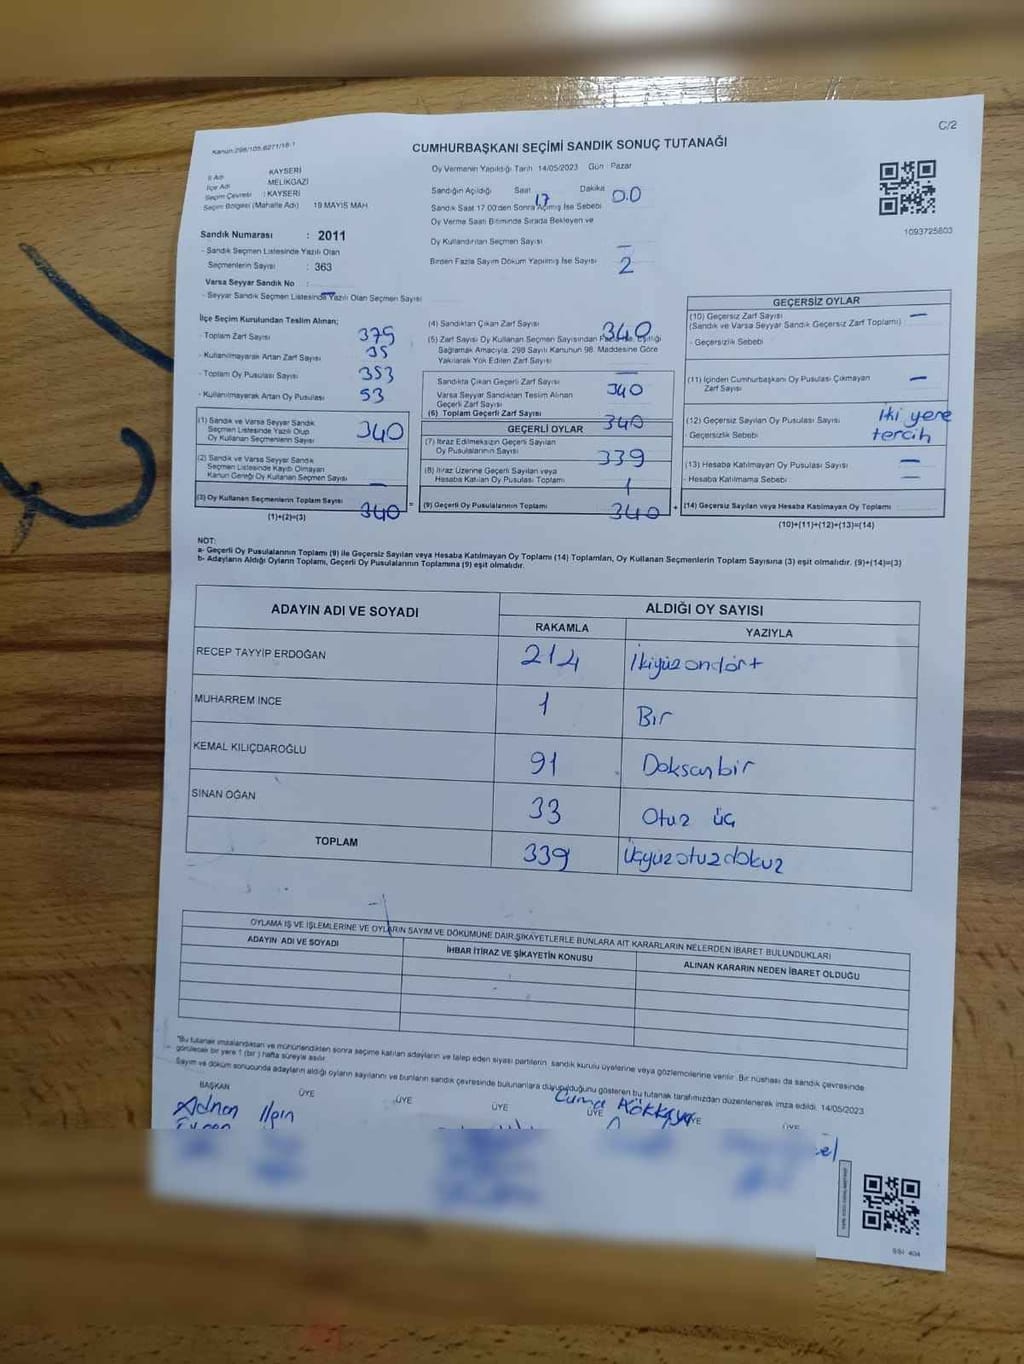 C/2
Kanun:298/105,6271/18-1
CUMHURBAŞKANI SEÇİMİ SANDIK SONUÇ TUTANAĞI
İl Adı KAYSERİ
İlçe Adı MELİKGAZİ
Seçim Çevresi : KAYSERİ
Seçim Bölgesi (Mahalle Adı) 19 MAYIS MAH
Oy Vermenin Yapıldığı Tarih 14/05/2023 Gün : Pazar
Sandığın Açıldığı Saat 17 Dakika 00
Sandık Saat 17.00'den Sonra Açılmış İse Sebebi
Oy Verme Saati Bitiminde Sırada Bekleyen ve
Oy Kullandırılan Seçmen Sayısı —
Birden Fazla Sayım Döküm Yapılmış İse Sayısı 2
1093725803
Sandık Numarası : 2011
- Sandık Seçmen Listesinde Yazılı Olan
Seçmenlerin Sayısı : 363
Varsa Seyyar Sandık No :
- Seyyar Sandık Seçmen Listesinde Yazılı Olan Seçmen Sayısı —
İlçe Seçim Kurulundan Teslim Alınan;
- Toplam Zarf Sayısı 375
- Kullanılmayarak Artan Zarf Sayısı 35
- Toplam Oy Pusulası Sayısı 353
- Kullanılmayarak Artan Oy Pusulası 53
(1) Sandık ve Varsa Seyyar Sandık
Seçmen Listesinde Yazılı Olup
Oy Kullanan Seçmenlerin Sayısı 340
(2) Sandık ve Varsa Seyyar Sandık
Seçmen Listesinde Kaydı Olmayan
Kanun Gereği Oy Kullanan Seçmen Sayısı —
(3) Oy Kullanan Seçmenlerin Toplam Sayısı 340
(1)+(2)=(3)
(4) Sandıktan Çıkan Zarf Sayısı 340
(5) Zarf Sayısı Oy Kullanan Seçmen Sayısından Fazla ise, Eşitliği
Sağlamak Amacıyla, 298 Sayılı Kanunun 98. Maddesine Göre
Yakılarak Yok Edilen Zarf Sayısı —
Sandıkta Çıkan Geçerli Zarf Sayısı 340
Varsa Seyyar Sandıktan Teslim Alınan
Geçerli Zarf Sayısı
(6) Toplam Geçerli Zarf Sayısı 340
GEÇERLİ OYLAR
(7) İtiraz Edilmeksizin Geçerli Sayılan
Oy Pusulalarının Sayısı 339
(8) İtiraz Üzerine Geçerli Sayılan veya
Hesaba Katılan Oy Pusulası Toplamı 1
= (9) Geçerli Oy Pusulalarının Toplamı 340 +
GEÇERSİZ OYLAR
(10) Geçersiz Zarf Sayısı —
(Sandık ve Varsa Seyyar Sandık Geçersiz Zarf Toplamı) :
- Geçersizlik Sebebi
(11) İçinden Cumhurbaşkanı Oy Pusulası Çıkmayan —
Zarf Sayısı
(12) Geçersiz Sayılan Oy Pusulası Sayısı iki yere
- Geçersizlik Sebebi tercih
(13) Hesaba Katılmayan Oy Pusulası Sayısı —
- Hesaba Katılmama Sebebi —
(14) Geçersiz Sayılan veya Hesaba Katılmayan Oy Toplamı
(10)+(11)+(12)+(13)=(14)
NOT:
a- Geçerli Oy Pusulalarının Toplamı (9) ile Geçersiz Sayılan veya Hesaba Katılmayan Oy Toplamı (14) Toplamları, Oy Kullanan Seçmenlerin Toplam Sayısına (3) eşit olmalıdır. (9)+(14)=(3)
b- Adayların Aldığı Oyların Toplamı, Geçerli Oy Pusulalarının Toplamına (9) eşit olmalıdır.
ADAYIN ADI VE SOYADI ALDIĞI OY SAYISI
RAKAMLA YAZIYLA
RECEP TAYYİP ERDOĞAN 214 İkiyüzondört
MUHARREM İNCE 1 Bir
KEMAL KILIÇDAROĞLU 91 Doksanbir
SİNAN OĞAN 33 Otuz üç
TOPLAM 339 Üçyüzotuzdokuz
OYLAMA İŞ VE İŞLEMLERİNE VE OYLARIN SAYIM VE DÖKÜMÜNE DAİR ŞİKAYETLERLE BUNLARA AİT KARARLARIN NELERDEN İBARET BULUNDUKLARI
ADAYIN ADI VE SOYADI İHBAR İTİRAZ VE ŞİKAYETİN KONUSU ALINAN KARARIN NEDEN İBARET OLDUĞU
*Bu tutanak imzalandıktan ve mühürlendikten sonra seçime katılan adayların ve talep eden siyasi partilerin, sandık kurulu üyelerine veya gözlemcilerine verilir. Bir nüshası da sandık çevresinde
görülecek bir yere 1 (bir) hafta süreyle asılır.
Sayım ve döküm sonucunda adayların aldığı oyların sayılarını ve bunların sandık çevresinde bulunanlara duyurulduğunu gösteren bu tutanak tarafımızdan düzenlenerek imza edildi. 14/05/2023
BAŞKAN ÜYE ÜYE ÜYE ÜYE ÜYE ÜYE
Adnan Ilgın Cuma Kökkaya
SSI 404